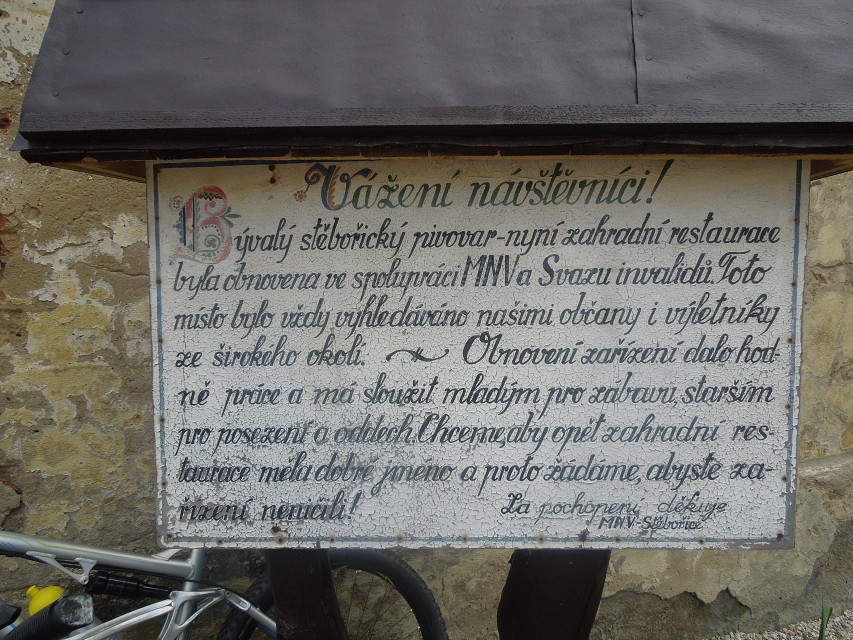 Vážení návštěvníci!
Bývalý stěbořický pivovar-nyní zahradní restaurace
byla obnovena ve spolupráci MNV a Svazu invalidů. Toto
místo bylo vždy vyhledáváno našimi občany i výletníky
ze širokého okolí. Obnovení zařízení dalo hod-
ně práce a má sloužit mladým pro zábavu, starším
pro posezení a oddech. Chceme, aby opět zahradní res-
taurace měla dobré jméno a proto žádáme, abyste za-
řízení neničili!
Za pochopení děkuje
MNV-Stěbořice